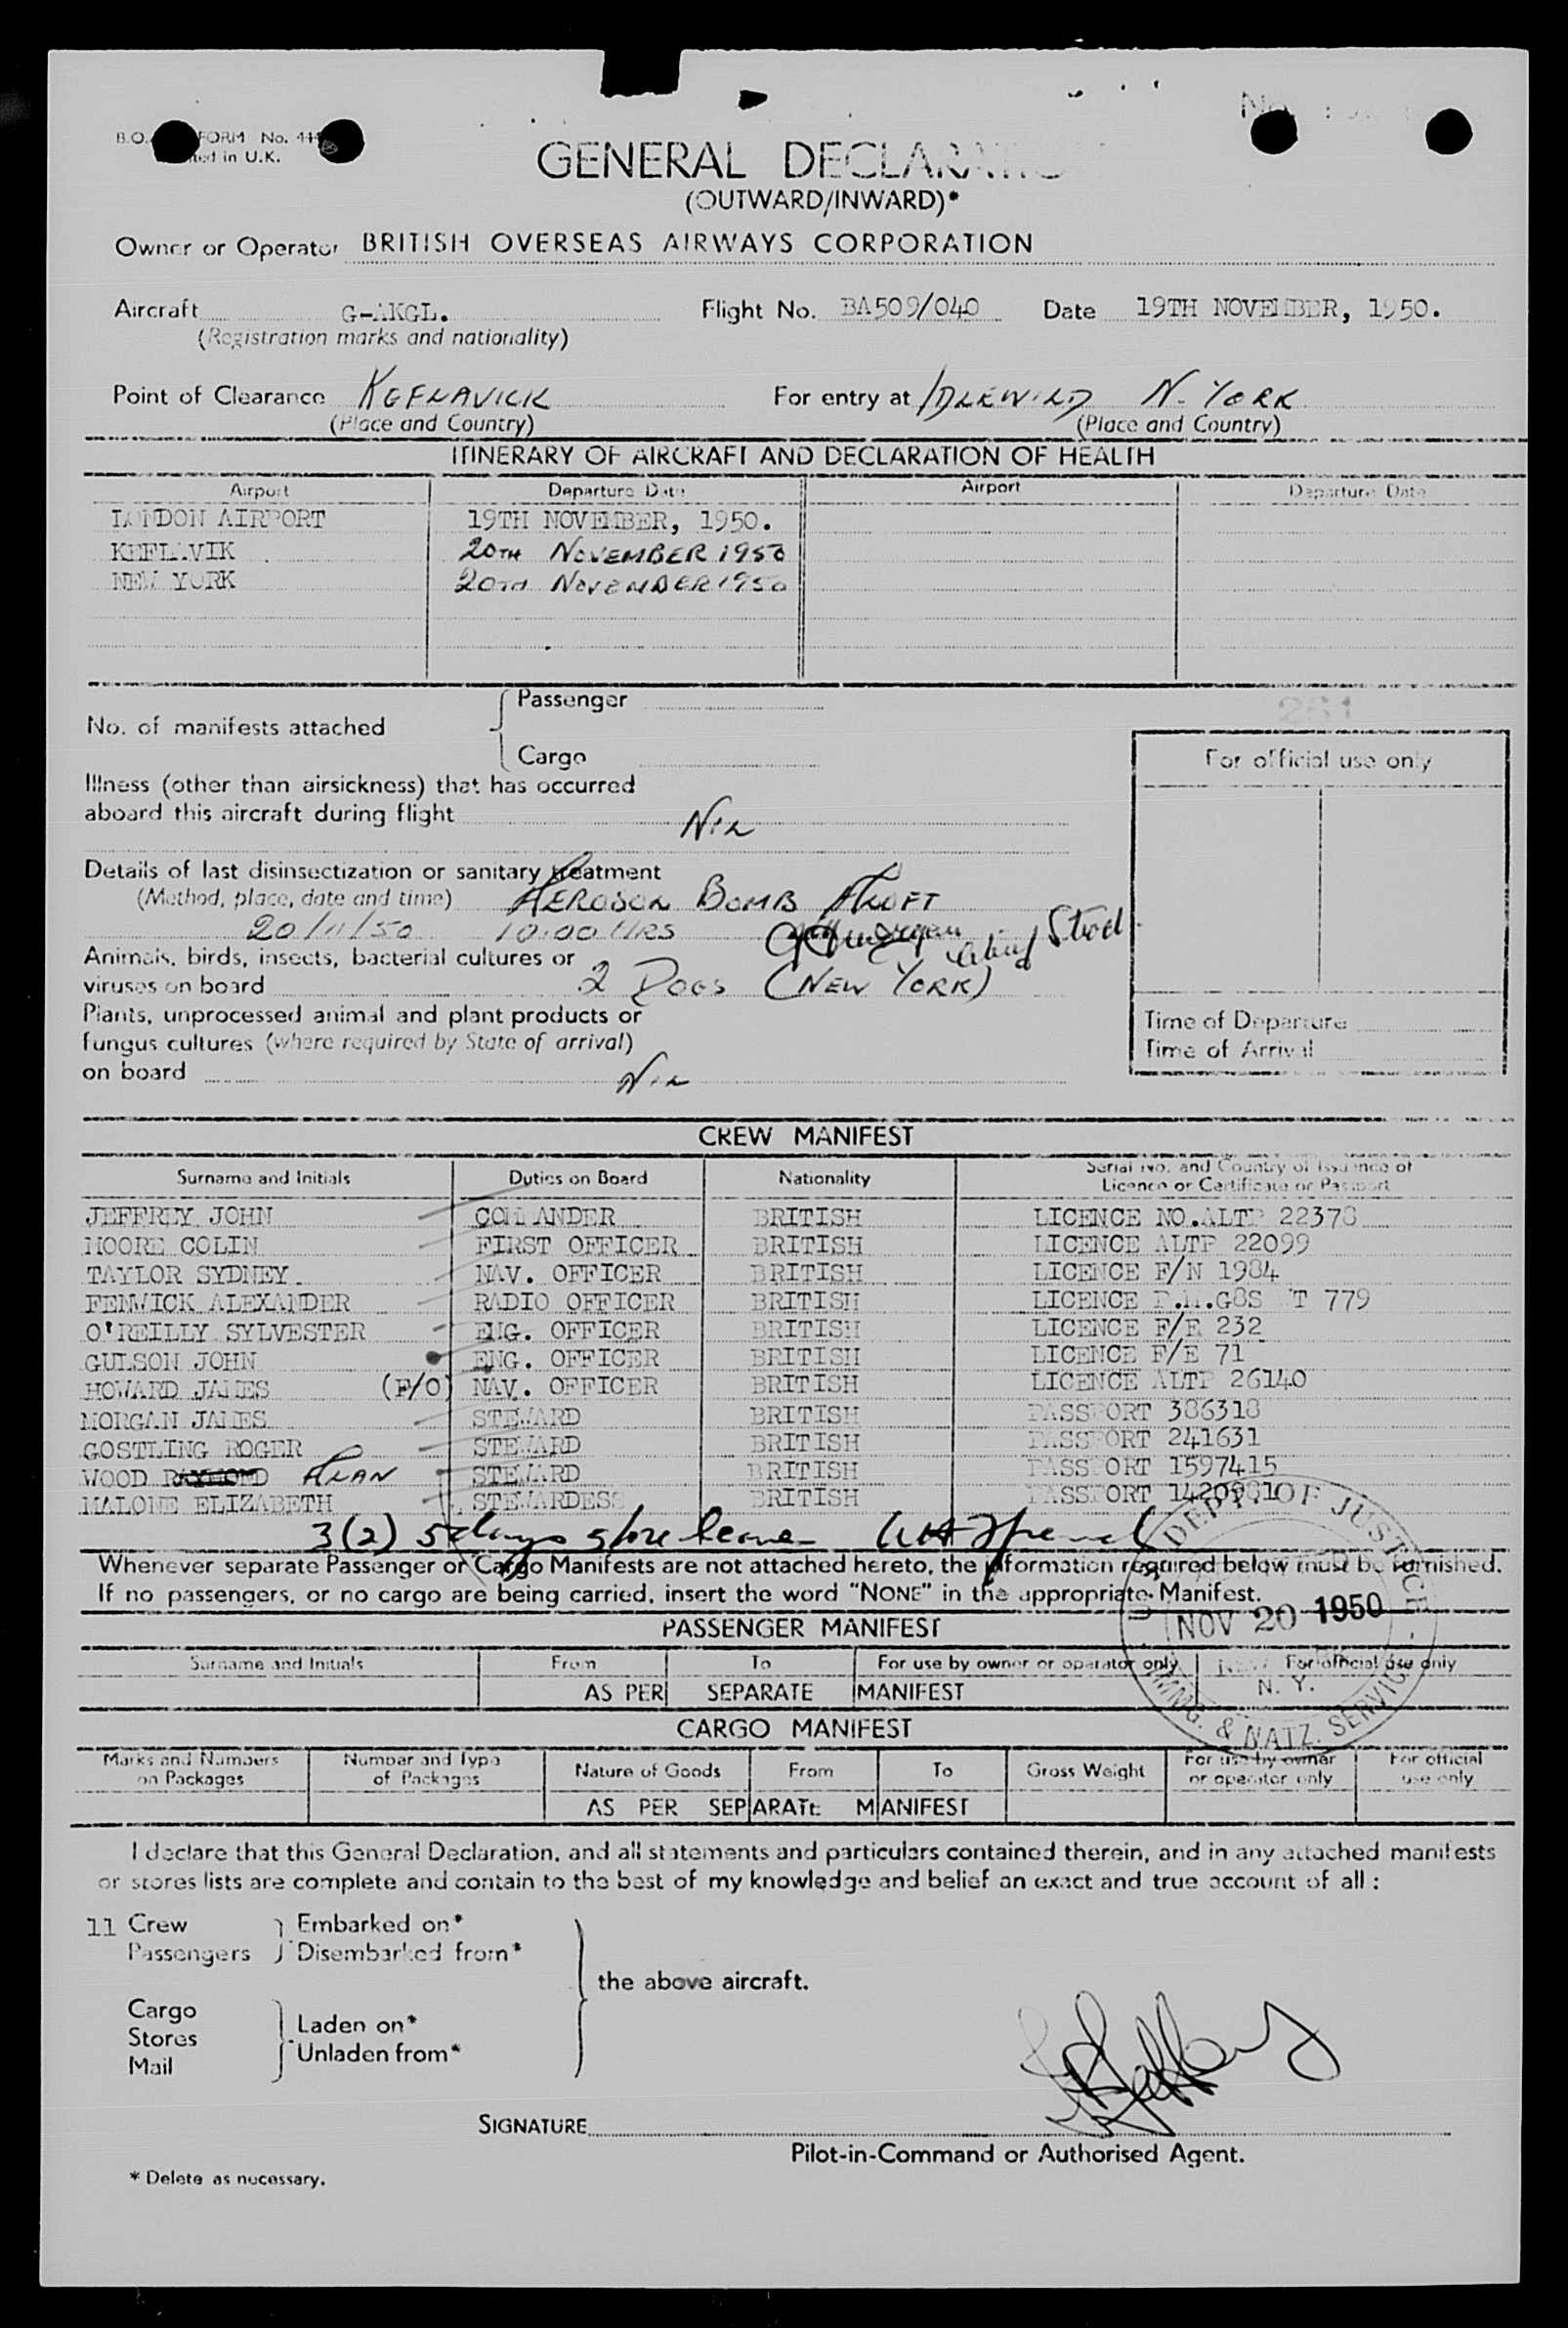 GENERAL
(OUTWARD/INWARD)*
Owner or Operator BRITISH OVERSEAS AIRWAYS CORPORATION
Aircraft G-AKGL. Flight No. BA509/040 Date 19TH NOVEMBER, 1950.
(Registration marks and nationality)
Point of Clearance KEFNAVICK For entry at IDLEWILD N. YORK
(Place and Country) (Place and Country)
ITINERARY OF AIRCRAFT AND DECLARATION OF HEALTH
Airport Departure Date Airport Departure Date
LONDON AIRPORT 19TH NOVEMBER, 1950.
KEFLAVIK 20TH NOVEMBER 1950
NEW YORK 20TH NOVEMBER 1950
No. of manifests attached Passenger
Cargo
261
For official use only
Illness (other than airsickness) that has occurred
aboard this aircraft during flight NIL
Details of last disinsectization or sanitary treatment
(Method, place, date and time) AEROSOL BOMB ALOFT
20/11/50 10:00 HRS
Animals, birds, insects, bacterial cultures or
viruses on board 2 DOGS (NEW YORK)
Plants, unprocessed animal and plant products or
fungus cultures (where required by State of arrival)
on board NIL
Time of Departure
Time of Arrival
CREW MANIFEST
Surname and Initials Duties on Board Nationality Serial No. and Country of Issuance of
Licence or Certificate or Passport
JEFFREY JOHN COMMANDER BRITISH LICENCE NO.ALTP 22378
MOORE COLIN FIRST OFFICER BRITISH LICENCE ALTP 22099
TAYLOR SYDNEY NAV. OFFICER BRITISH LICENCE F/N 1984
FENWICK ALEXANDER RADIO OFFICER BRITISH LICENCE 779
O'REILLY SYLVESTER ENG. OFFICER BRITISH LICENCE F/E 232
GULSON JOHN ENG. OFFICER BRITISH LICENCE F/E 71
HOWARD JAMES (F/O) NAV. OFFICER BRITISH LICENCE ALTP 26140
MORGAN JAMES STEWARD BRITISH PASSPORT 386318
GOSTLING ROGER STEWARD BRITISH PASSPORT 241631
WOOD RAYMOND ALAN STEWARD BRITISH PASSPORT 1597415
MALONE ELIZABETH STEWARDESS BRITISH PASSPORT
3(2) 5 days shore leave
Whenever separate Passenger or Cargo Manifests are not attached hereto, the information required below must be furnished.
If no passengers, or no cargo are being carried, insert the word "NONE" in the appropriate Manifest.
DEPT. OF JUSTICE
NOV 20 1950
N. Y.
IMMIG. & NATZ. SERVICE
PASSENGER MANIFEST
Surname and Initials From To For use by owner or operator only For official use only
AS PER SEPARATE MANIFEST
CARGO MANIFEST
Marks and Numbers on Packages Number and Type of Packages Nature of Goods From To Gross Weight For use by owner or operator only For official use only
AS PER SEPARATE MANIFEST
I declare that this General Declaration, and all statements and particulars contained therein, and in any attached manifests
or stores lists are complete and contain to the best of my knowledge and belief an exact and true account of all :
11 Crew Embarked on*
Passengers Disembarked from*
the above aircraft.
Cargo
Stores Laden on*
Mail Unladen from*
SIGNATURE
Pilot-in-Command or Authorised Agent.
* Delete as necessary.